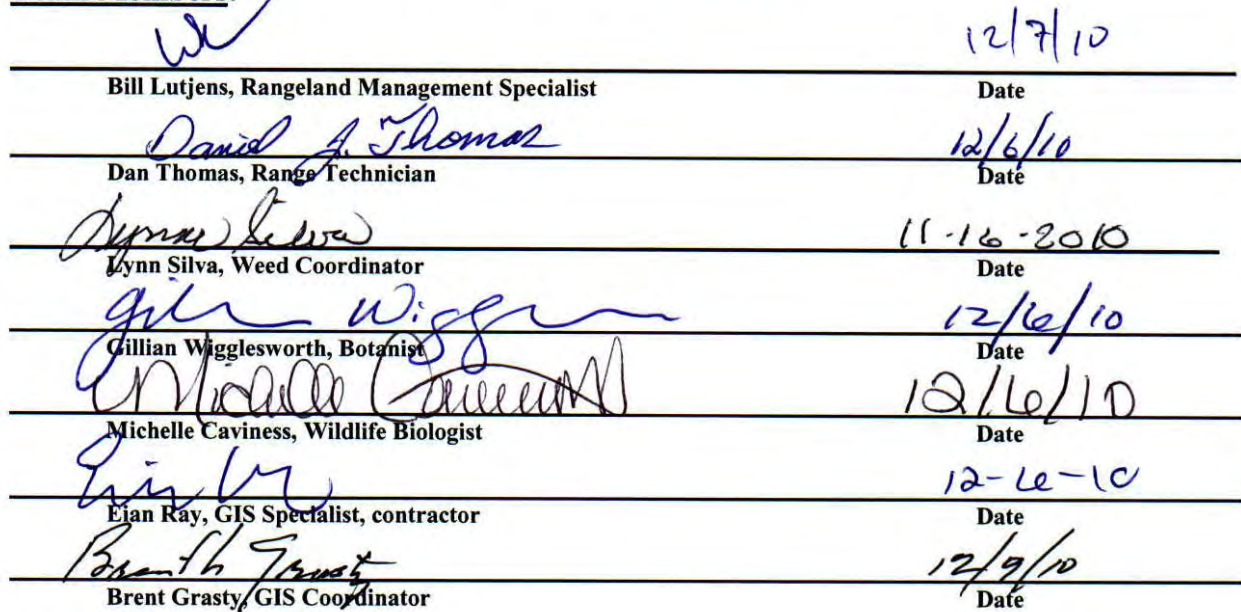 12/7/10
Bill Lutjens, Rangeland Management Specialist Date
Daniel J. Thomas 12/6/10
Dan Thomas, Range Technician Date
Lynne Silva 11-16-2010
Lynn Silva, Weed Coordinator Date
12/6/10
Gillian Wigglesworth, Botanist Date
Michelle Caviness 12/6/10
Michelle Caviness, Wildlife Biologist Date
12-6-10
Eian Ray, GIS Specialist, contractor Date
12/9/10
Brent Grasty, GIS Coordinator Date